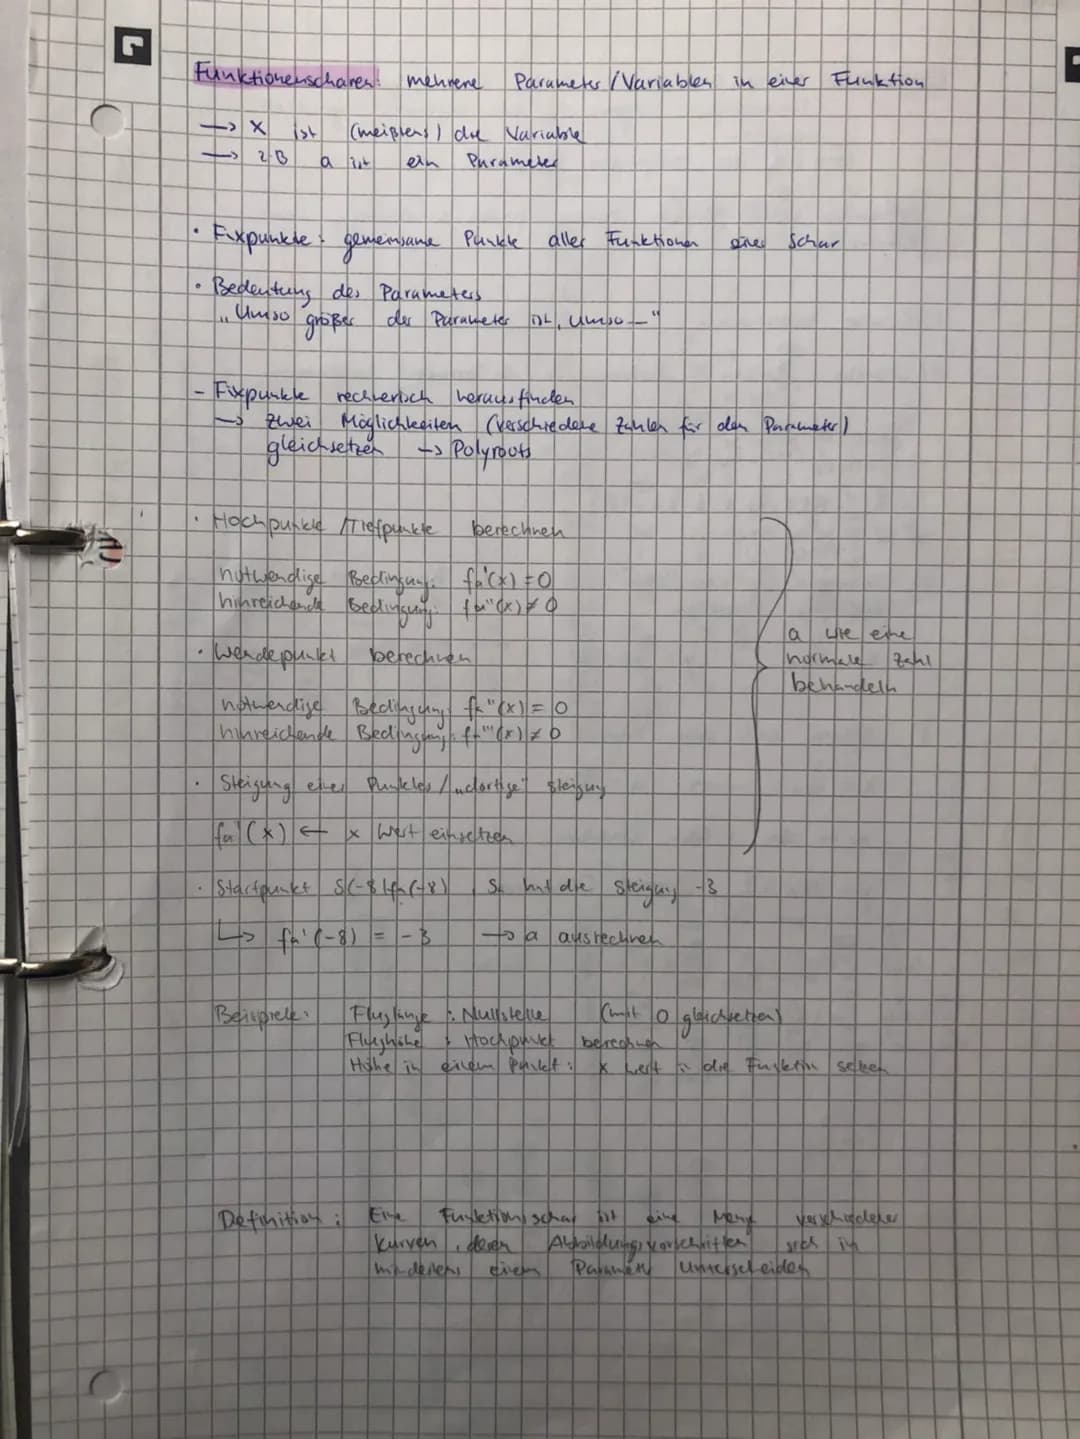 Funktionenscharen: mehrere Parameter/Variablen in einer Funktion
→ x ist (meistens) die Variable
→ z.B a ist ein Parameter
• Fixpunkte: gemeinsame Punkte aller Funktionen einer Schar
• Bedeutung des Parameters
„Umso größer der Parameter ist, umso —"
- Fixpunkte rechnerisch herausfinden
→ zwei Möglichkeiten (verschiedene Zahlen für den Parameter)
gleichsetzen → Polyroots
• Hochpunkte/Tiefpunkte berechnen
notwendige Bedingung: fa'(x) = 0
hinreichende Bedingung: fa''(x) ≠ 0
a wie eine
normale Zahl
behandeln
• Wendepunkt berechnen
notwendige Bedingung fa''(x) = 0
hinreichende Bedingung: fa'''(x) ≠ 0
• Steigung eines Punktes/„dortige" Steigung
fa'(x) ← x Wert einsetzen
• Startpunkt S(-8|fa(-8)) S hat die Steigung -3
↳ fa'(-8) = -3 → a ausrechnen
Beispiele: Fluglänge : Nullstelle (mit 0 gleichsetzen)
Flughöhe : Hochpunkt berechnen
Höhe in einem Punkt: x Wert in die Funktion setzen
Definition: Eine Funktionsschar ist eine Menge verschiedener
Kurven, deren Abbildungsvorschriften sich in
mindestens einem Parameter unterscheiden